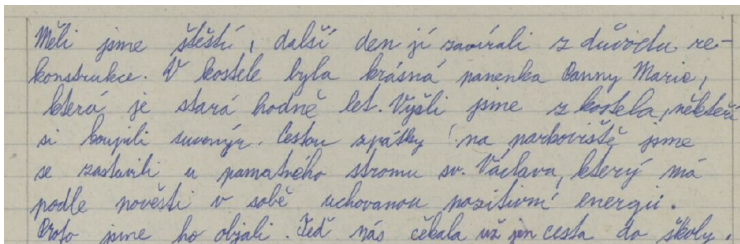 Měli jsme štěstí, další den jí zavírali z důvodu re-
konstrukce. V kostele byla krásná panenka Panny Marie,
která je stará hodně let. Vyšli jsme z kostela, někteří
si koupili suvenýr. Cestou zpátky na parkoviště jsme
se zastavili u pamatného stromu sv. Václava, který má
podle pověsti v sobě uchovanou pozitivní energii.
Proto jsme ho objali. Teď nás čekala už jen cesta do školy.